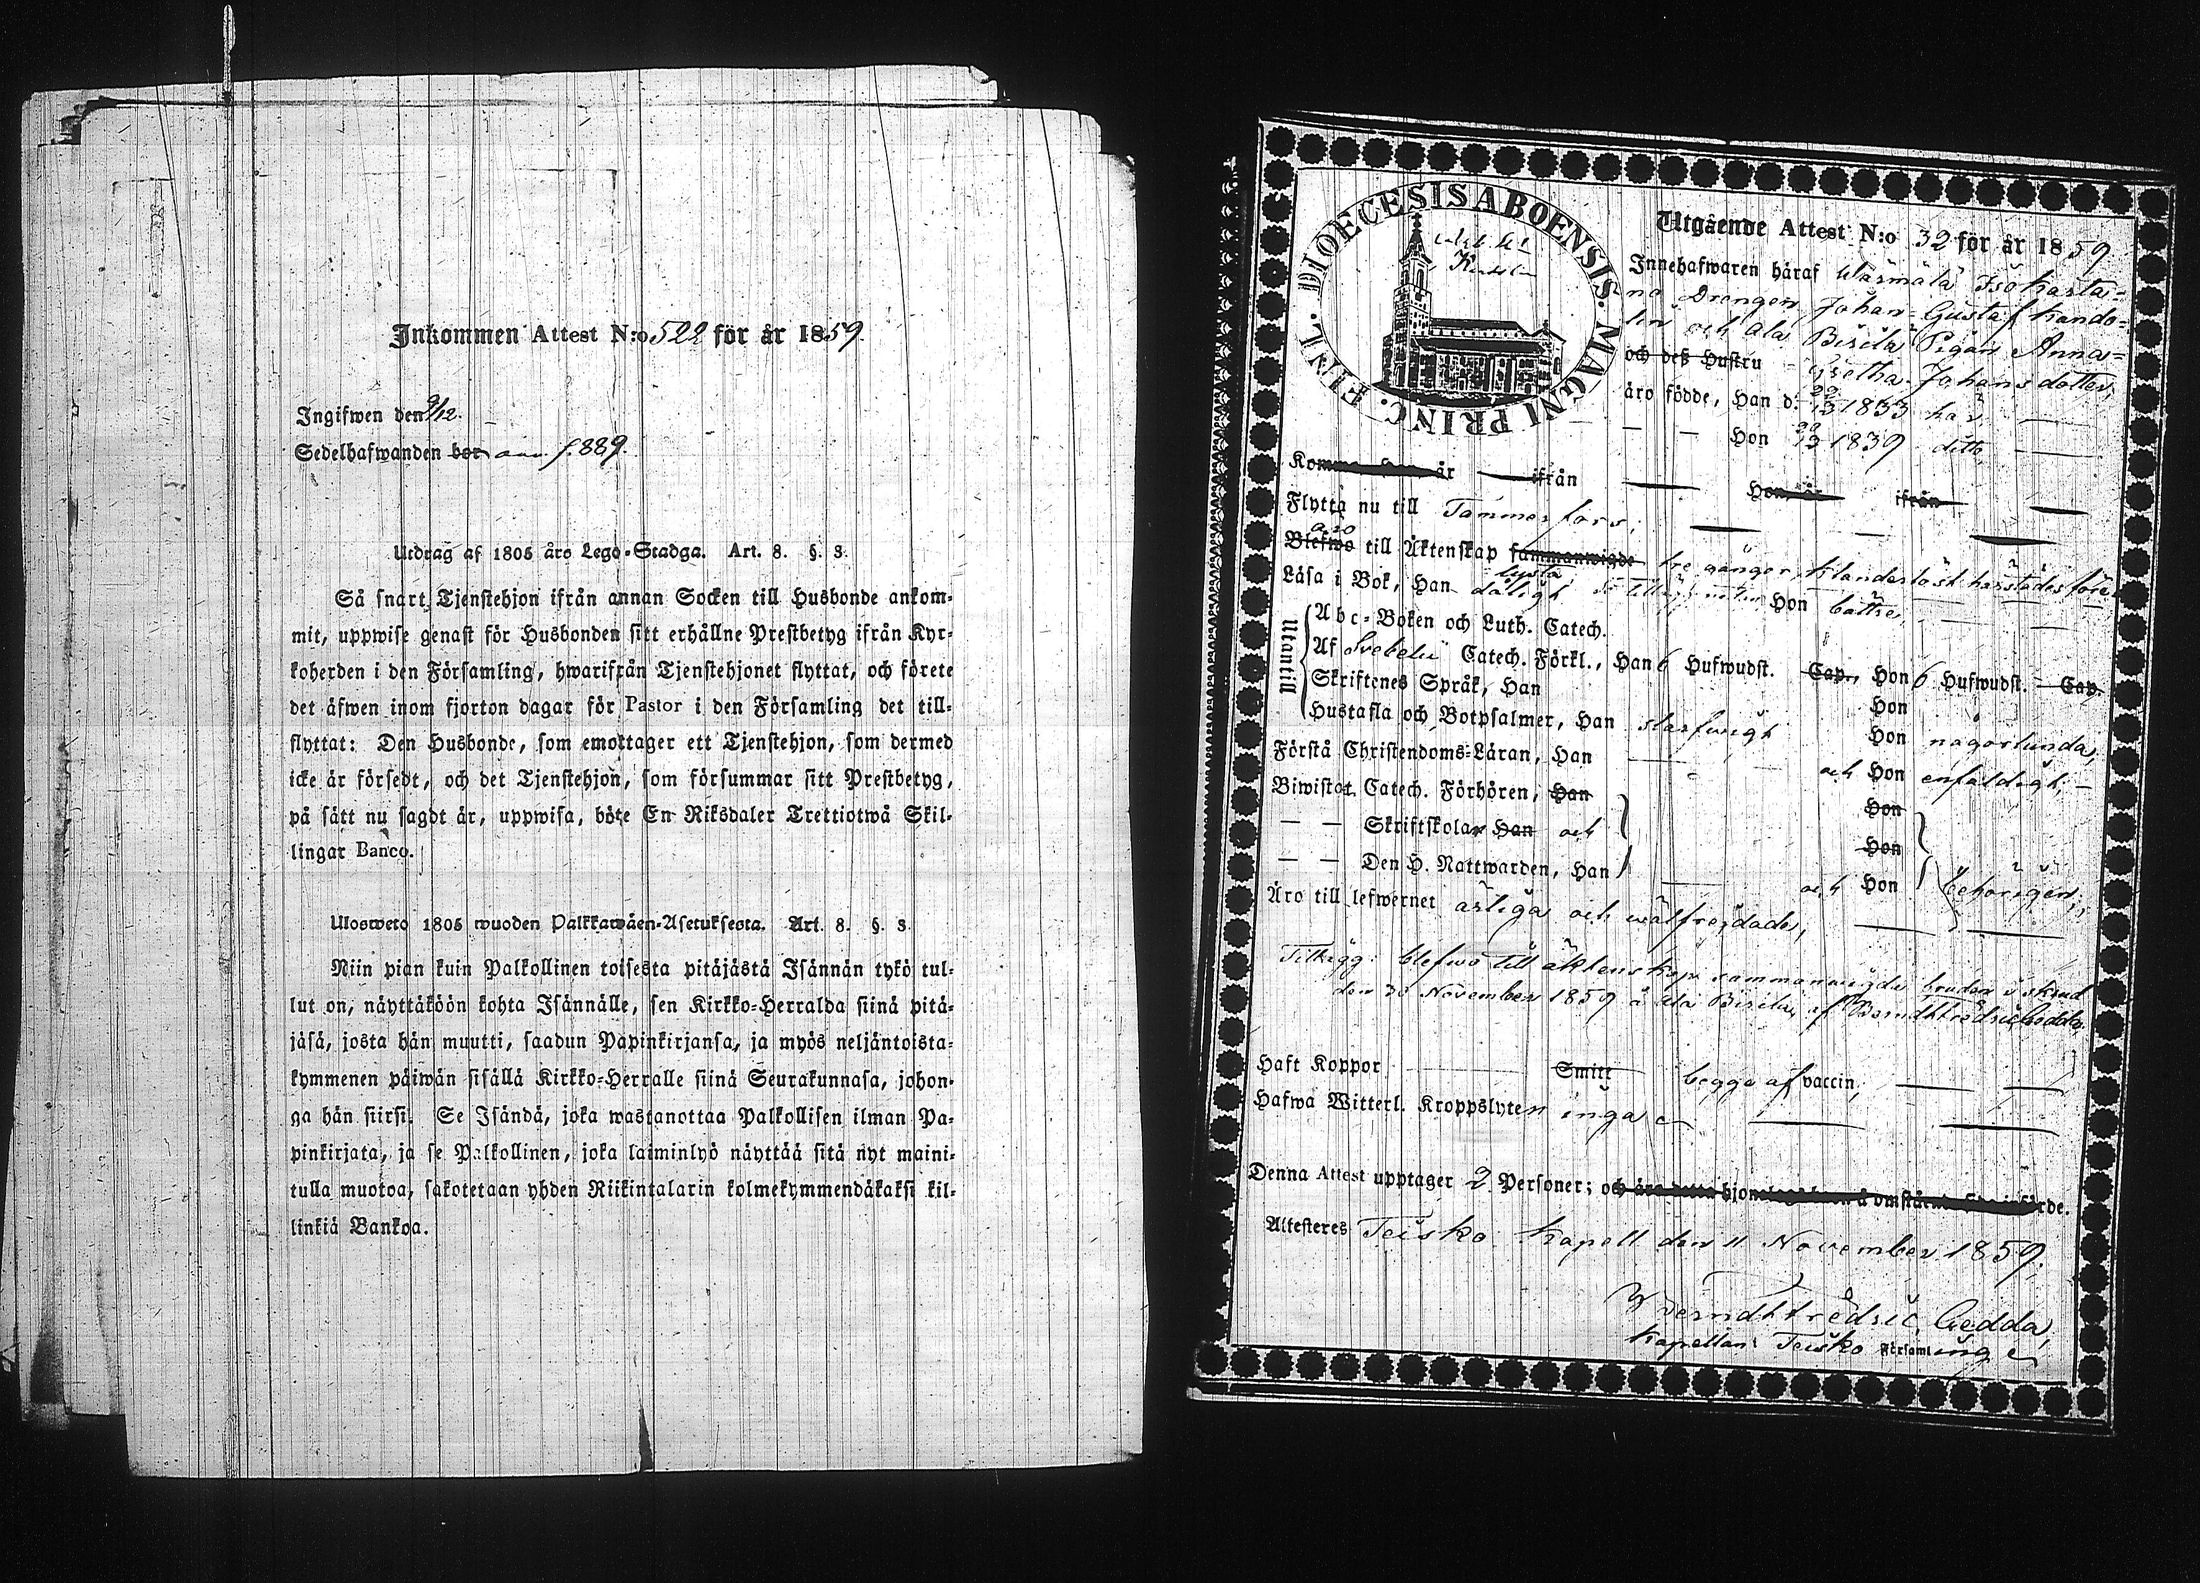 Inkommen Attest N:o 522 för år 1859.
Ingifwen den 9/12.
Sedelhafwanden bor f. 889.
Utdrag af 1805 års Lego-Stadga. Art. 8. §. 3.
Så snart Tjenstehjon ifrån annan Socken till Husbonde ankom-
mit, uppwise genast för Husbonden sitt erhållne Prestbetyg ifrån Kyr-
koherden i den Församling, hwarifrån Tjenstehjonet flyttat, och förete
det äfwen inom fjorton dagar för Pastor i den Församling det till-
flyttat: Den Husbonde, som emottager ett Tjenstehjon, som dermed
icke är försedt, och det Tjenstehjon, som försummar sitt Prestbetyg,
på sätt nu sagdt är, uppwisa, böte En Riksdaler Trettiotwå Skil-
lingar Banco.
Ulosweto 1805 wuoden Palkkawäen-Asetuksesta. Art. 8. §. 3.
Niin pian kuin Palkollinen toisesta pitäjästä Isännän tykö tul-
lut on, näyttäköön kohta Isännälle, sen Kirkko-Herralda siinä pitä-
jäsä, josta hän muutti, saadun Papinkirjansa, ja myös neljäntoista-
kymmenen päiwän sisällä Kirkko-Herralle siinä Seurakunnasa, johon-
ga hän siirsi. Se Isändä, joka wastanottaa Palkollisen ilman Pa-
pinkirjata, ja se Palkollinen, joka laiminlyö näyttää sitä nyt maini-
tulla muotoa, sakotetaan yhden Riikintalarin kolmekymmendäkaksi kil-
linkiä Bankoa.
DIOECESIS ABOENSIS. MAGNI PRINC. FINL.
Utgående Attest N:o 32 för år 1859
Innehafwaren häraf Wärmälä Isokarta-
no Drengen Johan Gustaf Kando-
lin och Ala Birilä Pigan Anna-
och deß Hustru Gretha Johansdotter,
äro födde, Han d. 1833 här
Hon 1839 ditto,
Komme är ifrån Hon är ifrån
Flytta nu till Tammerfors;
äro
Blefwo till Äktenskap sammanwigde tre gånger klanderlöst härstädes
lysta
Läsa i Bok, Han dåligt Hon bättre,
Utantill
Abc-Boken och Luth. Catech.
Af Svebelii Catech. Förkl., Han 6 Hufwudst. Cap., Hon 6 Hufwudst. Cap.
Skriftenes Språk, Han Hon
Hustafla och Botpsalmer, Han slarfwigt Hon någorlunda,
Förstå Christendoms-Läran, Han och Hon enfaldigt,
Biwistat Catech. Förhören, Han Hon
Skriftskolan Han och Hon
Den H. Nattwarden, Han och Hon behörigen,
Äro till lefwernet ärliga och wälfrejdade,
Tillägg: blefwo till äktenskap sammanwigde
den 30 November 1859 å Ala Birilä, af Berndt Fredric Gedda.
Haft Koppor Smitt begge af vaccin,
Hafwa Witterl. Kroppslyten inga
Denna Attest upptager 2 Personer;
Attesteres Teisko Kapell den 11 November 1859,
Berndt Fredric Gedda,
Kapellan i Teisko Församling